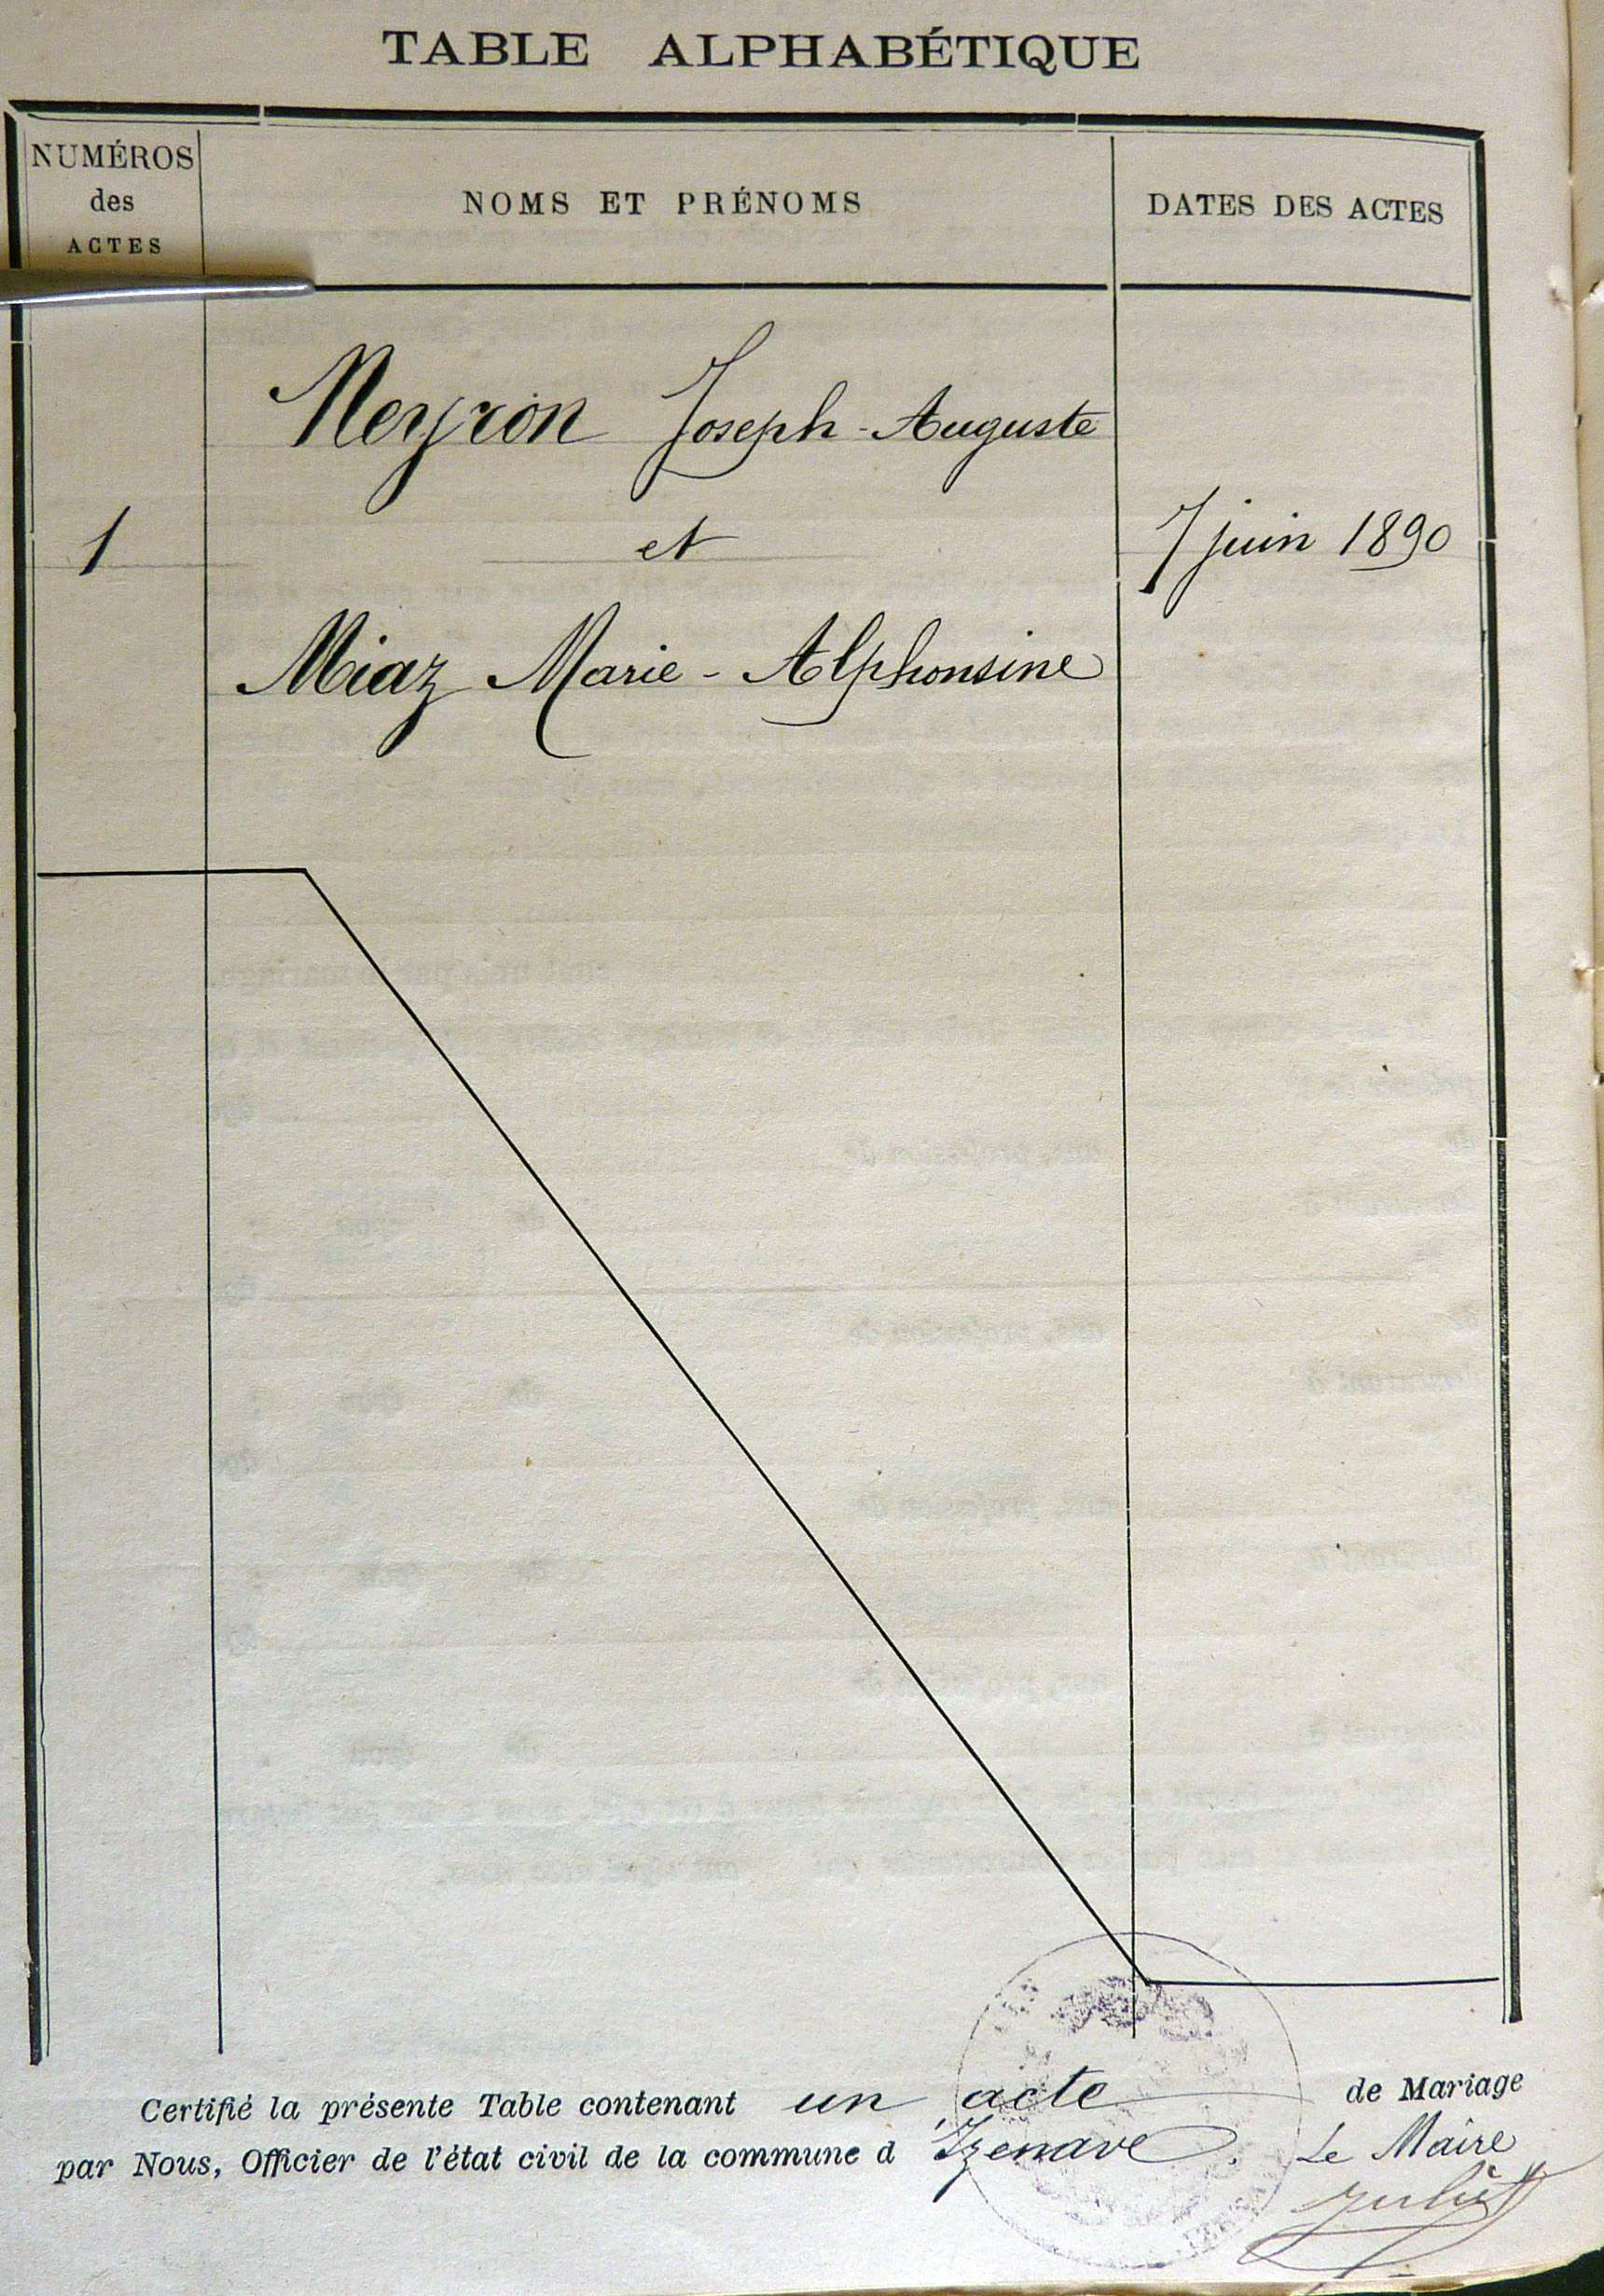 TABLE ALPHABÉTIQUE
NUMÉROS
des
ACTES
NOMS ET PRÉNOMS
DATES DES ACTES
Neyron Joseph-Auguste
1
et
7 juin 1890
Miaz Marie-Alphonsine
Certifié la présente Table contenant un acte de Mariage
par Nous, Officier de l'état civil de la commune d'Izenave. Le Maire